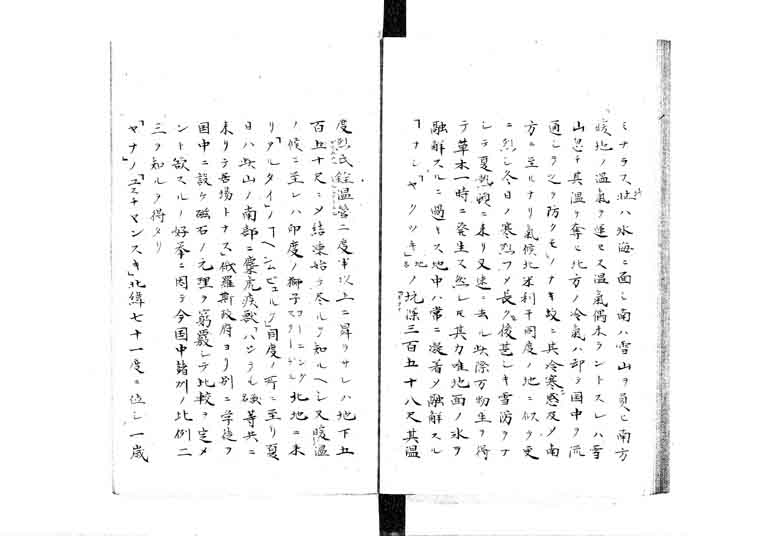 ミナラス北ハ氷海ニ面シ南ハ雪山ヲ負ヒ南方
暖地ノ温氣ヲ進セス温氣偶来ラントスレハ雪
山忽チ其温ヲ奪ヒ北方ノ冷氣ハ却テ国中ヲ流
通シテ之ヲ防クモノナキ故ニ其冷寒感及メ南
方ニ至ルナリ氣候北米利干同度ノ地ニ似テ更
ニ烈シ冬日ノ寒烈フメ長ク後甚シキ雪防ヲナ
シテ夏熱頓ニ来リ又速ニ去ル此際万物生ヲ得
テ草木一時ニ発生ス然レ氏其力唯地面ノ氷ヲ
融解スルニ過キス地中ハ常ニ凝着メ融解スル
ナシ「ヤクツキ」地ノ坑深三百五十八尺其温
度烈氏銓温管二度半以上ニ昇リサレハ地下五
百五十尺ニメ結凍始テ尽ルヲ知ルヘシ又暖温
ノ候ニ至レハ印度ノ獅子 北地ニ来
リ「アルタイ」ノ「ヘンムビュルク」同度ノ所ニ至リ夏
日ハ此山ノ南部ニ麋虎疾獣「ハジラル」等共ニ
来リテ居場トナス俄羅斯政府ヨリ別ニ学徒ヲ
国中ニ設ケ磁石ノ元理ヲ窮覈シテ比較ヲ定メ
ント欲スルノ好挙ニ因テ今国中諸州ノ比例二
三ヲ知ルヲ得タリ
「ヤナ」ノ「ユスチマンスキ」北緯七十一度ニ位シ一歳